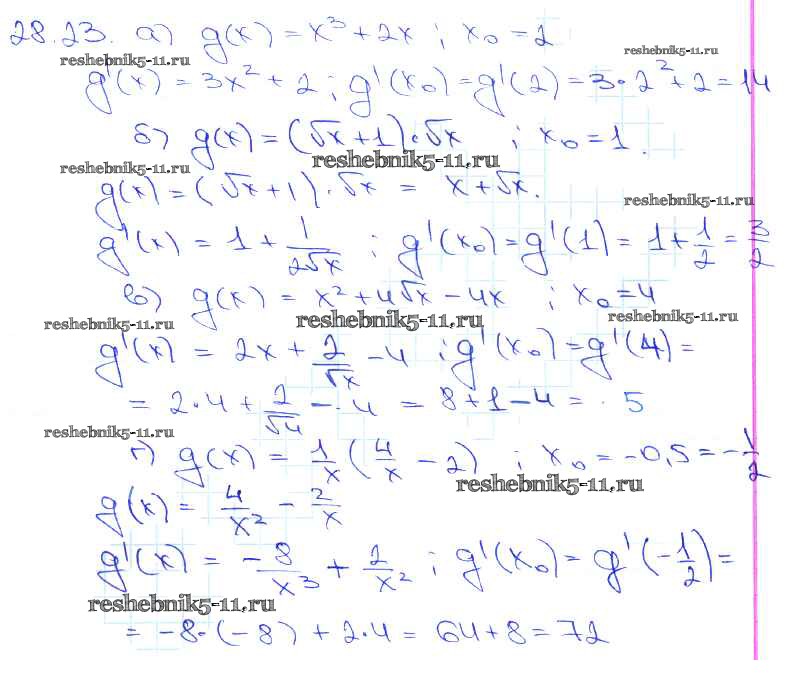 28.23. а) g(x) = x³ + 2x ; x₀ = 2
reshebnik5-11.ru
reshebnik5-11.ru
g'(x) = 3x² + 2 ; g'(x₀) = g'(2) = 3·2² + 2 = 14
б) g(x) = (√x + 1)·√x ; x₀ = 1.
reshebnik5-11.ru
reshebnik5-11.ru
g(x) = (√x + 1)·√x = x + √x.
reshebnik5-11.ru
g'(x) = 1 + 1/(2√x) ; g'(x₀) = g'(1) = 1 + 1/2 = 3/2
в) g(x) = x² + 4√x - 4x ; x₀ = 4
reshebnik5-11.ru
reshebnik5-11.ru
reshebnik5-11.ru
g'(x) = 2x + 2/√x - 4 ; g'(x₀) = g'(4) =
= 2·4 + 2/√4 - 4 = 8 + 1 - 4 = 5
reshebnik5-11.ru
г) g(x) = 1/x (4/x - 2) ; x₀ = -0,5 = -1/2
reshebnik5-11.ru
g(x) = 4/x² - 2/x
g'(x) = -8/x³ + 2/x² ; g'(x₀) = g'(-1/2) =
reshebnik5-11.ru
= -8·(-8) + 2·4 = 64 + 8 = 72